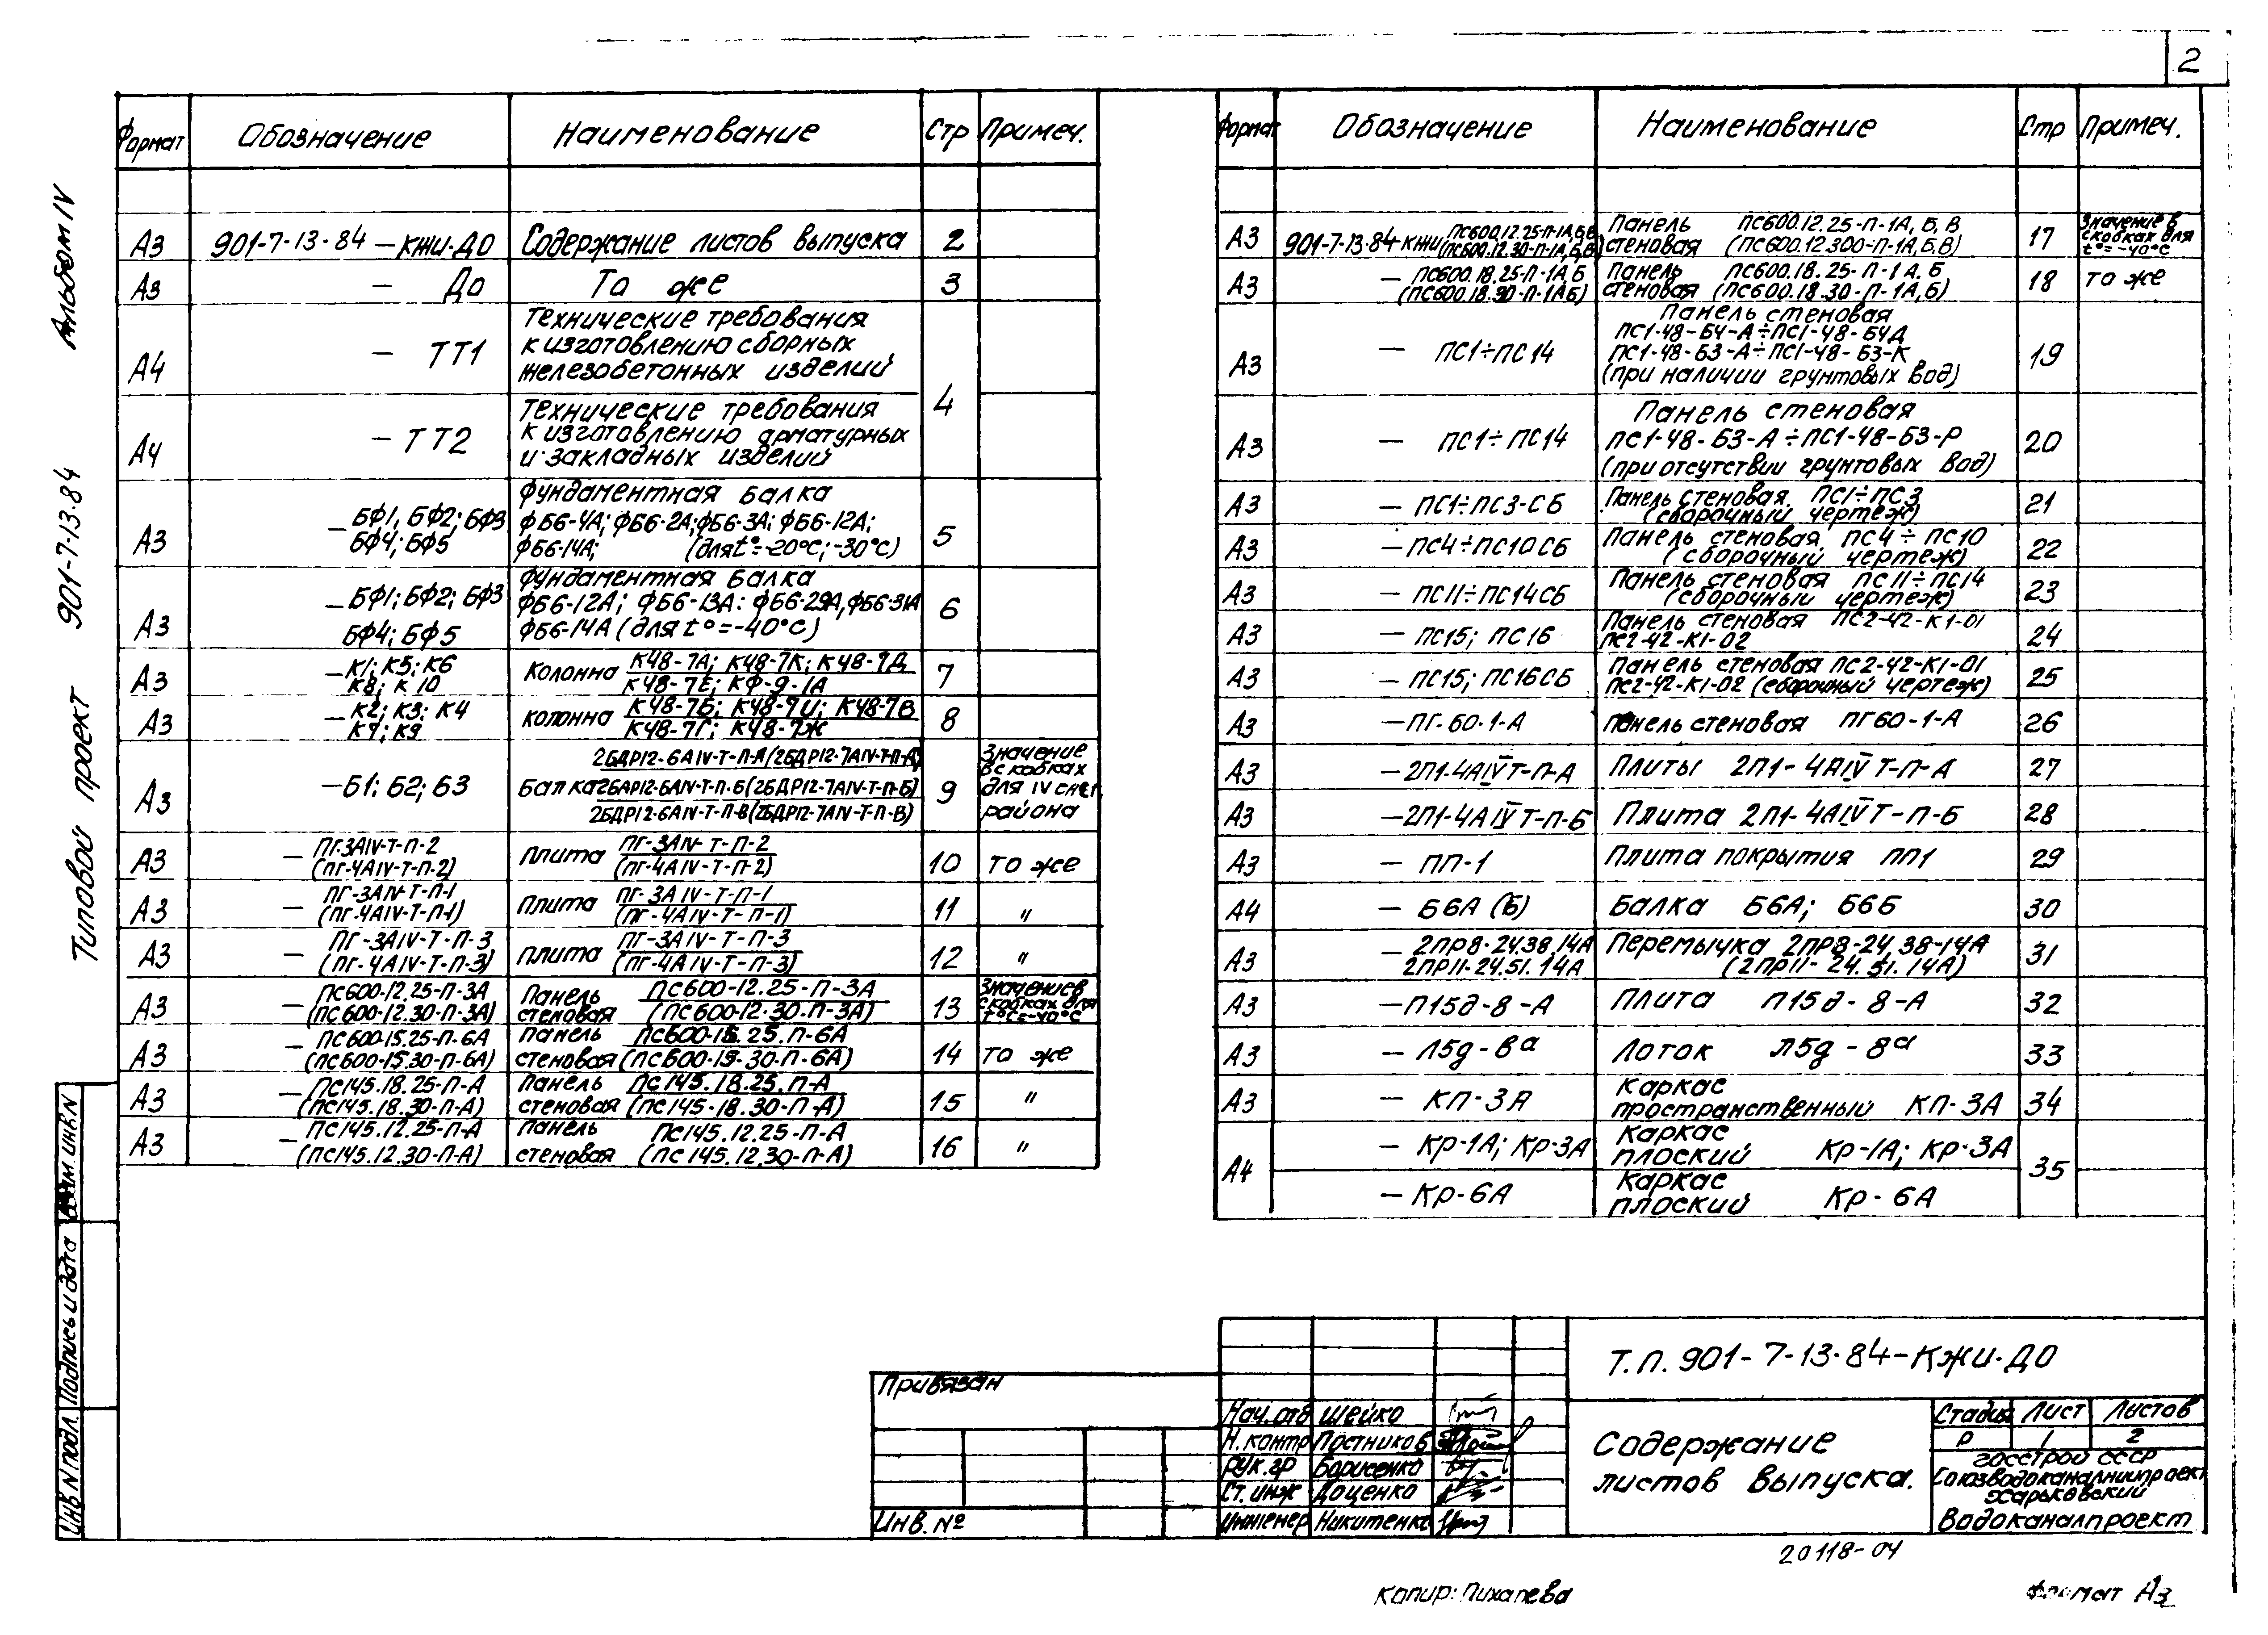 2
Альбом IV
Типовой проект 901-7-13.84
Формат Обозначение Наименование Стр Примеч.
А3 901-7-13.84 -КЖИ.ДО Содержание листов выпуска 2
А3 - ДО То же 3
А4 - ТТ1 Технические требования
к изготовлению сборных
железобетонных изделий
4
А4 - ТТ2 Технические требования
к изготовлению арматурных
и закладных изделий
А3 -БФ1; БФ2; БФ3
БФ4; БФ5
Фундаментная балка
ФБ6-4А; ФБ6-2А; ФБ6-3А; ФБ6-12А;
ФБ6-14А; (для t°=-20°С; -30°С) 5
А3 -БФ1; БФ2; БФ3
БФ4; БФ5
Фундаментная балка
ФБ6-12А; ФБ6-13А: ФБ6-29А, ФБ6-31А
ФБ6-14А (для t°=-40°С) 6
А3 -К1; К5; К6
К8; К10
Колонна К48-7А; К48-7К; К48-7Д
К48-7Е; КФ-9-1А 7
А3 -К2; К3; К4
К7; К9
Колонна К48-7Б; К48-7И; К48-7В
К48-7Г; К48-7Ж 8
А3 -Б1; Б2; Б3
2БДР12-6АIV-Т-П-А(2БДР12-7АIV-Т-П-А)
Балка 2БДР12-6АIV-Т-П-Б(2БДР12-7АIV-Т-П-Б)
2БДР12-6АIV-Т-П-В(2БДР12-7АIV-Т-П-В) 9
Значение
в скобках
для IV снег.
района
А3 - ПГ-3АIV-Т-П-2
(ПГ-4АIV-Т-П-2)
Плита ПГ-3АIV-Т-П-2
(ПГ-4АIV-Т-П-2) 10 то же
А3 - ПГ-3АIV-Т-П-1
(ПГ-4АIV-Т-П-1)
Плита ПГ-3АIV-Т-П-1
(ПГ-4АIV-Т-П-1) 11 "
А3 - ПГ-3АIV-Т-П-3
(ПГ-4АIV-Т-П-3)
Плита ПГ-3АIV-Т-П-3
(ПГ-4АIV-Т-П-3) 12 "
А3 - ПС600-12.25-П-3А
(ПС600-12.30-П-3А)
Панель ПС600-12.25-П-3А
стеновая (ПС600-12.30.П-3А) 13
Значение в
скобках для
t°С=-40°С
А3 - ПС600-15.25-П-6А
(ПС600-15.30-П-6А)
Панель ПС600-15.25.П-6А
стеновая (ПС600-15-30.П-6А) 14 то же
А3 - ПС145.18.25-П-А
(ПС145.18.30-П-А)
Панель ПС145.18.25.П-А
стеновая (ПС145-18.30-П-А) 15 "
А3 - ПС145.12.25-П-А
(ПС145.12.30-П-А)
Панель ПС145.12.25-П-А
стеновая (ПС145.12.30-П-А) 16 "
Формат Обозначение Наименование Стр Примеч.
А3 901-7-13-84-КЖИ ПС600.12.25-П-1А,Б,В
(ПС600.12.30-П-1А,Б,В)
Панель ПС600.12.25-П-1А, Б, В
стеновая (ПС600.12.300-П-1А,Б,В) 17
Значение в
скобках для
t°=-40°С
А3 - ПС600.18.25-П-1А,Б
(ПС600.18.30-П-1А,Б)
Панель ПС600.18.25-П-1А.Б
стеновая (ПС600.18.30-П-1А,Б) 18 то же
А3 - ПС1÷ПС14 Панель стеновая
ПС1-48-Б4-А÷ПС1-48-Б4Д
ПС1-48-Б3-А÷ПС1-48-Б3-К
(при наличии грунтовых вод) 19
А3 - ПС1÷ПС14 Панель стеновая
ПС1-48-Б3-А÷ПС1-48-Б3-Р
(при отсутствии грунтовых вод) 20
А3 -ПС1÷ПС3-СБ Панель стеновая ПС1÷ПС3
(сборочный чертеж) 21
А3 -ПС4÷ПС10СБ Панель стеновая ПС4÷ПС10
(сборочный чертеж) 22
А3 - ПС11÷ПС14СБ Панель стеновая ПС11÷ПС14
(сборочный чертеж) 23
А3 - ПС15; ПС16 Панель стеновая ПС2-42-К1-01
ПС2-42-К1-02 24
А3 - ПС15; ПС16СБ Панель стеновая ПС2-42-К1-01
ПС2-42-К1-02 (сборочный чертеж) 25
А3 -ПГ-60-1-А Панель стеновая ПГ60-1-А 26
А3 -2П1-4АIVТ-П-А Плиты 2П1-4АIVТ-П-А 27
А3 -2П1-4АIVТ-П-Б Плита 2П1-4АIVТ-П-Б 28
А3 - ПП-1 Плита покрытия ПП1 29
А4 - Б6А (Б) Балка Б6А; Б6Б 30
А3 - 2ПР8-24.38.14А
2ПР11-24.51.14А
Перемычка 2ПР8-24.38-14А
(2ПР11-24.51.14А) 31
А3 -П15д-8-А Плита П15д-8-А 32
А3 - Л5д-8а Лоток Л5д-8а 33
А3 - КП-3А Каркас
пространственный КП-3А 34
А4 - Кр-1А; Кр-3А Каркас
плоский Кр-1А; Кр-3А
35
- Кр-6А Каркас
плоский Кр-6А
Взам инв N
Подпись и дата
Инв N подл.
Привязан
Инв. №
Т.П. 901-7-13-84-КЖИ.ДО
Нач.отд Шейко
Н.контр Постников
Рук.гр Борисенко
Ст.инж Доценко
Инженер Никитенко
Содержание
листов выпуска.
Стадия Лист Листов
Р 1 2
Госстрой СССР
Союзводоканалниипроект
Харьковский
Водоканалпроект
20118-04
Копир:
Формат А3